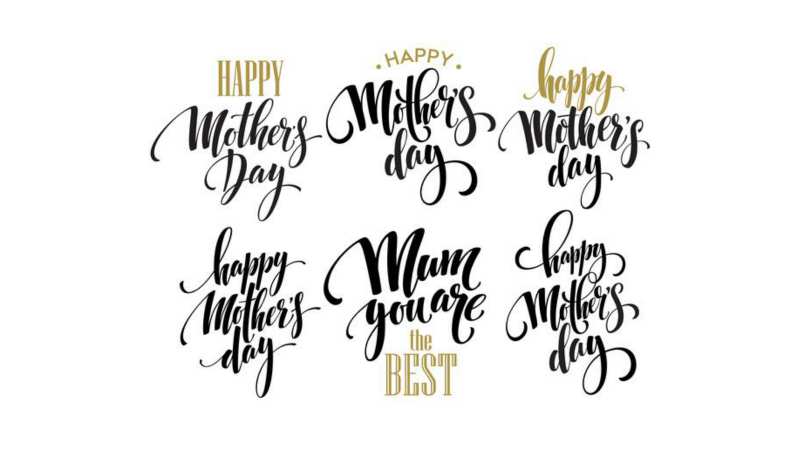 HAPPY
Mother's
Day
HAPPY
Mother's
day
happy
Mother's
day
happy
Mother's
day
Mum
you are
the
BEST
happy
Mother's
day